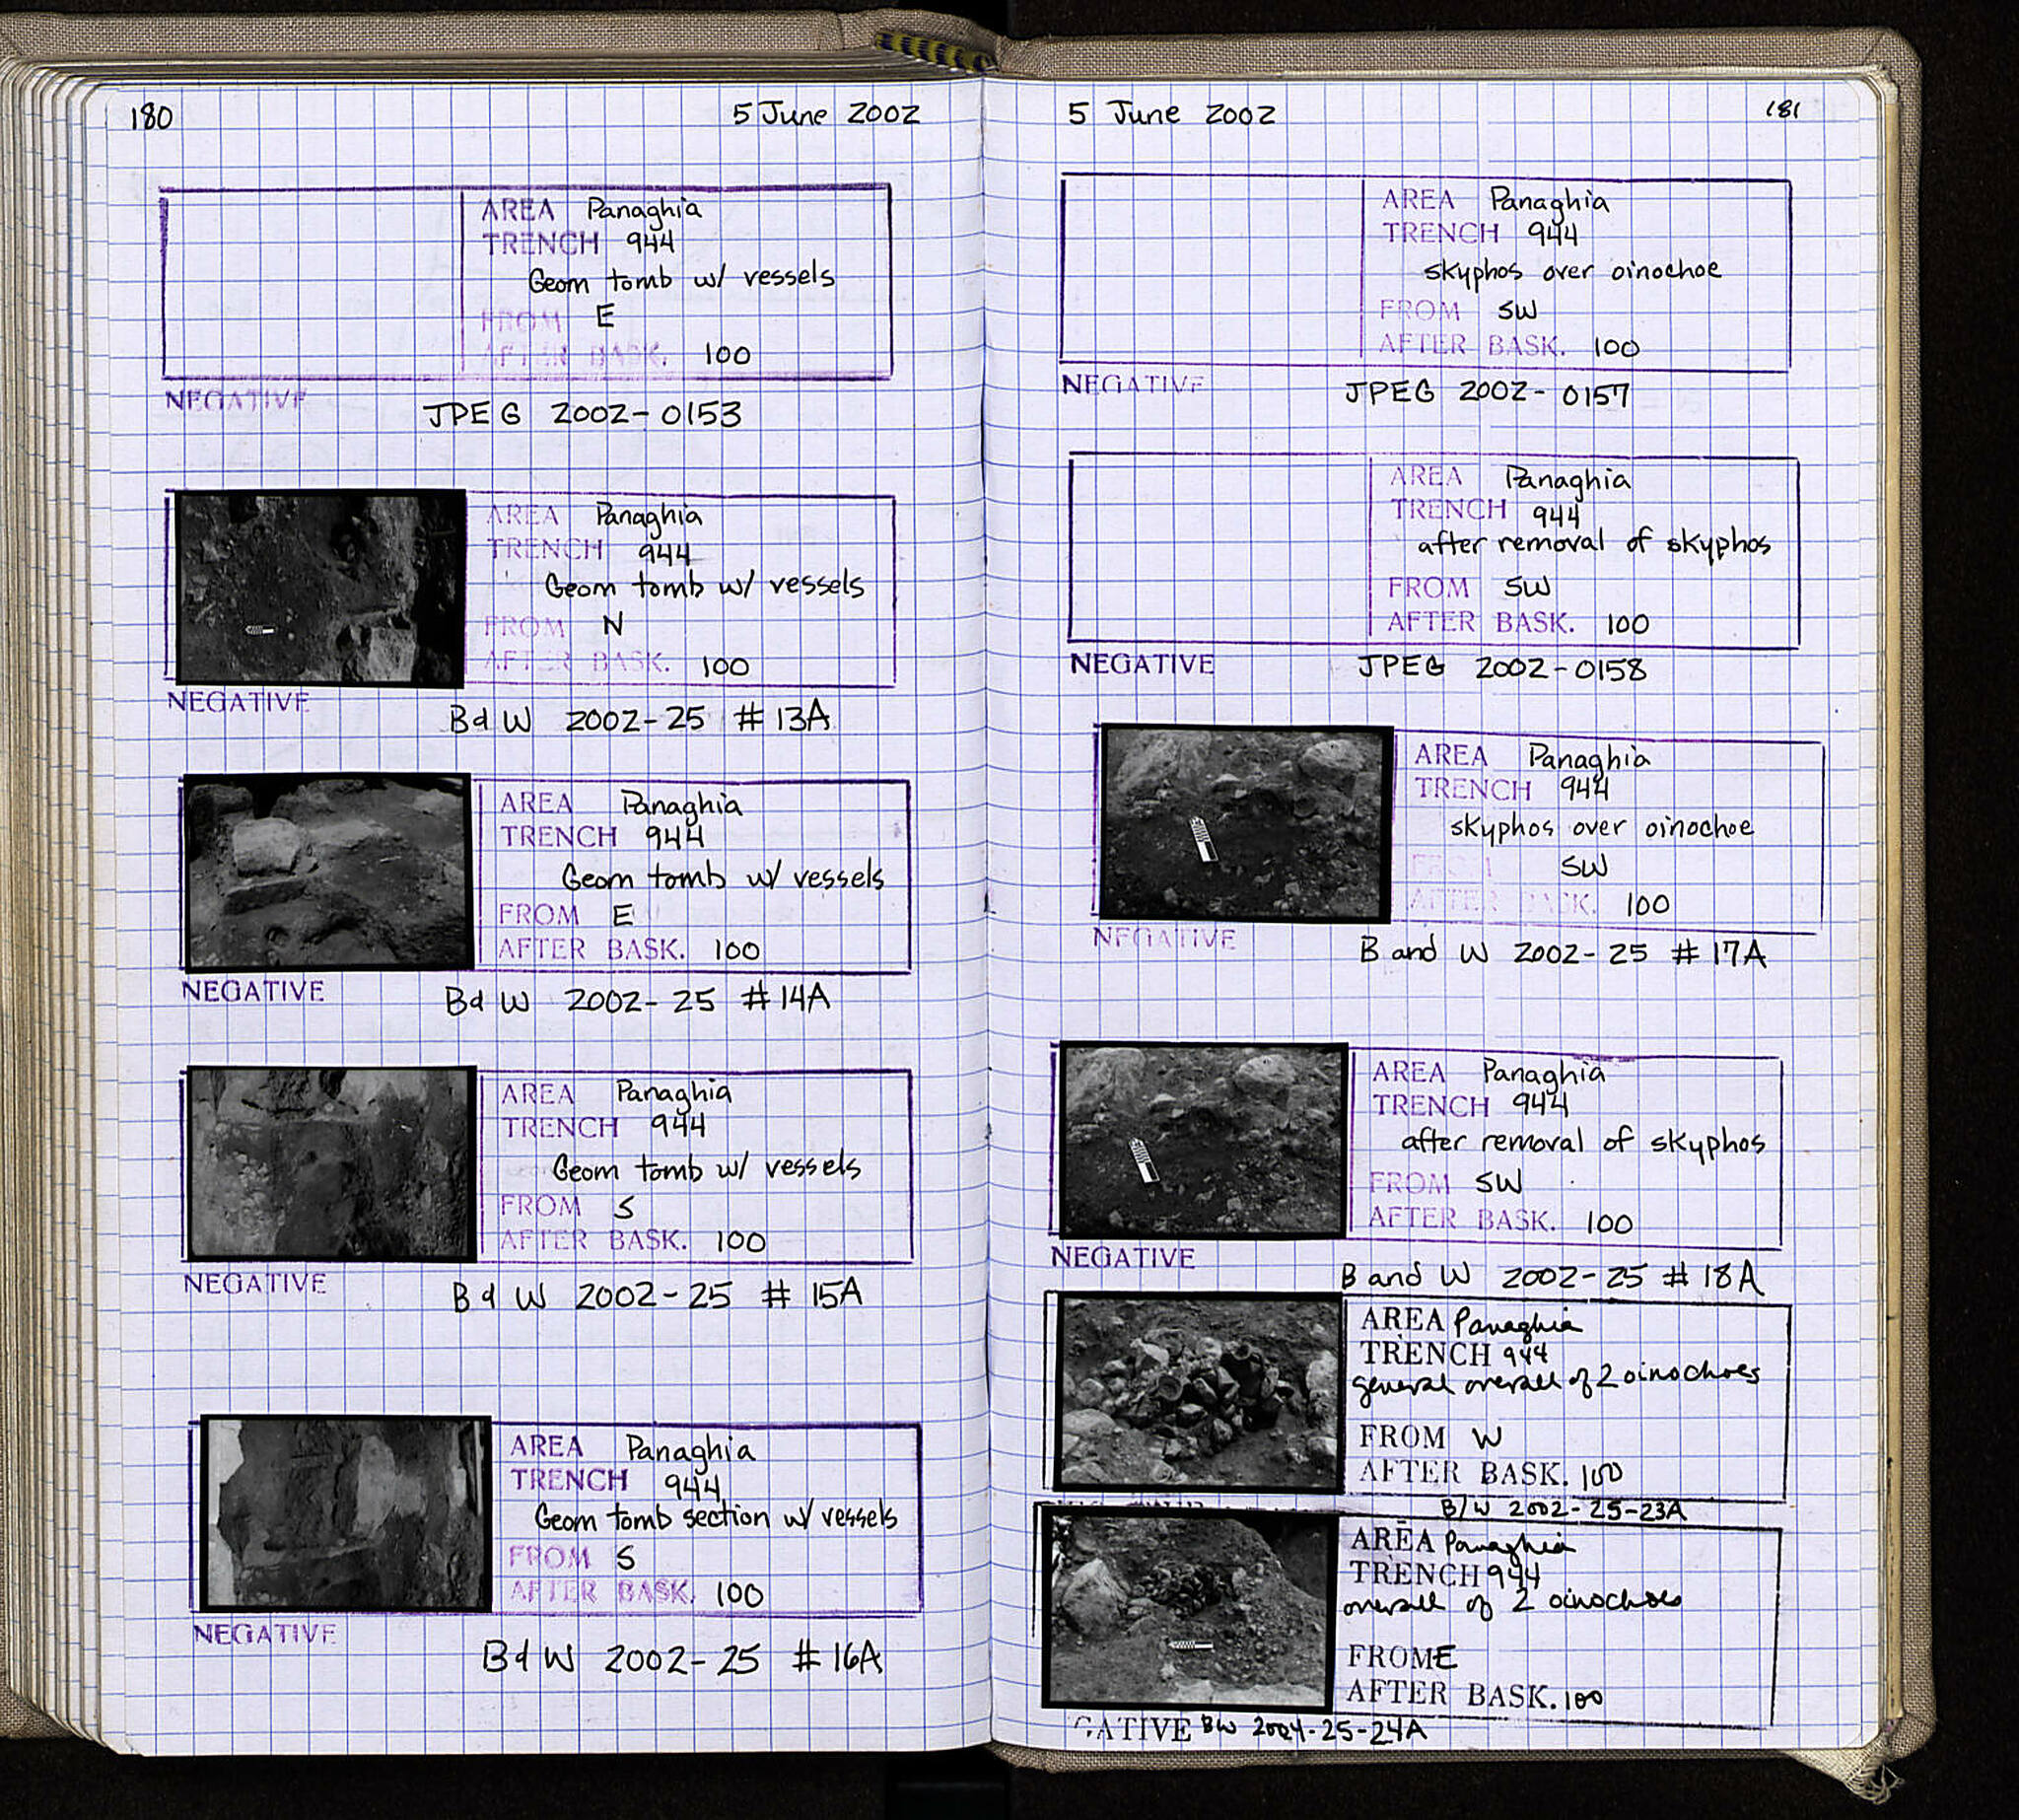 180
5 June 2002
AREA Panaghia
TRENCH 944
Geom tomb w/ vessels
FROM E
AFTER BASK. 100
NEGATIVE
JPEG 2002-0153
AREA Panaghia
TRENCH 944
Geom tomb w/ vessels
FROM N
AFTER BASK. 100
NEGATIVE
B d W 2002-25 # 13A
AREA Panaghia
TRENCH 944
Geom tomb w/ vessels
FROM E
AFTER BASK. 100
NEGATIVE
B d W 2002-25 # 14A
AREA Panaghia
TRENCH 944
Geom tomb w/ vessels
FROM S
AFTER BASK. 100
NEGATIVE
B d W 2002-25 # 15A
AREA Panaghia
TRENCH 944
Geom tomb section w/ vessels
FROM S
AFTER BASK. 100
NEGATIVE
B d W 2002-25 # 16A
5 June 2002
181
AREA Panaghia
TRENCH 944
skyphos over oinochoe
FROM SW
AFTER BASK. 100
NEGATIVE
JPEG 2002-0157
AREA Panaghia
TRENCH 944
after removal of skyphos
FROM SW
AFTER BASK. 100
NEGATIVE
JPEG 2002-0158
AREA Panaghia
TRENCH 944
skyphos over oinochoe
FROM SW
AFTER BASK. 100
NEGATIVE
B and W 2002-25 # 17A
AREA Panaghia
TRENCH 944
after removal of skyphos
FROM SW
AFTER BASK. 100
NEGATIVE
B and W 2002-25 # 18A
AREA Panaghia
TRENCH 944
general overall of 2 oinochoes
FROM W
AFTER BASK. 100
B/W 2002-25-23A
AREA Panaghia
TRENCH 944
overall of 2 oinochoes
FROM E
AFTER BASK. 100
GATIVE BW 2004-25-24A